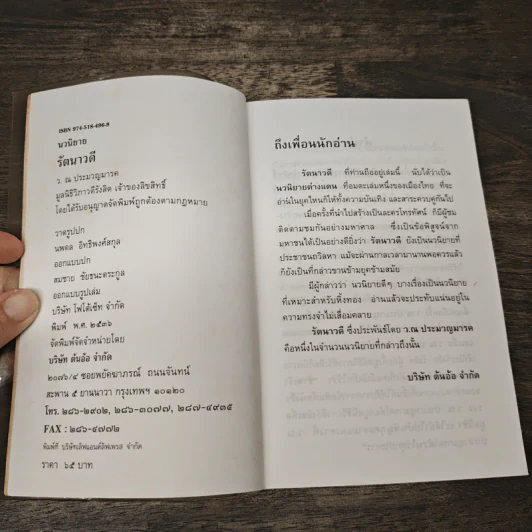 ISBN 974-518-496-8
นวนิยาย
รัตนาวดี
ว. ณ ประมวญมารค
มูลนิธิวิภาวดีรังสิต เจ้าของลิขสิทธิ์
โดยได้รับอนุญาตจัดพิมพ์ถูกต้องตามกฎหมาย
วาดรูปปก
นพดล อิทธิพงศ์สกุล
ออกแบบปก
สมชาย ชัยธนะตระกูล
ออกแบบรูปเล่ม
บริษัท โฟโต้เซ็ท จำกัด
พิมพ์ พ.ศ. ๒๕๓๖
จัดพิมพ์จัดจำหน่ายโดย
บริษัท ต้นอ้อ จำกัด
๒๐๗๖/๔ ซอยพยัคฆาภรณ์ ถนนจันทน์
สะพาน ๕ ยานนาวา กรุงเทพฯ ๑๐๑๒๐
โทร. ๒๘๖-๒๙๐๒, ๒๘๖-๓๐๗๗, ๒๘๗-๔๙๓๕
FAX : ๒๘๖-๔๗๗๒
พิมพ์ที่ บริษัทเลิฟแอนด์ลิฟเพรส จำกัด
ราคา ๖๕ บาท
ถึงเพื่อนนักอ่าน
รัตนาวดี ที่ท่านถืออยู่เล่มนี้ นับได้ว่าเป็น
นวนิยายต่างแดน ที่อมตะเล่มหนึ่งของเมืองไทย ที่จะ
อ่านในยุคไหนก็ให้ทั้งความบันเทิง และสาระควบคู่กันไป
เมื่อครั้งที่นำไปสร้างเป็นละครโทรทัศน์ ก็มีผู้ชม
ติดตามชมกันอย่างมหาศาล ซึ่งเป็นข้อพิสูจน์จาก
มหาชนได้เป็นอย่างดียิ่งว่า รัตนาวดี ยังเป็นนวนิยายที่
ประชาชนถวิลหา แม้จะผ่านกาลเวลามานานพอควรแล้ว
ก็ยังเป็นที่กล่าวขานข้ามยุคข้ามสมัย
มีผู้กล่าวว่า นวนิยายดีๆ บางเรื่องเป็นนวนิยาย
ที่เหมาะสำหรับหิ้งทอง อ่านแล้วจะประทับแน่นอยู่ใน
ความทรงจำไม่เสื่อมคลาย
รัตนาวดี ซึ่งประพันธ์โดย ว.ณ ประมวญมารค
คือหนึ่งในจำนวนนวนิยายที่กล่าวถึงนั้น
บริษัท ต้นอ้อ จำกัด